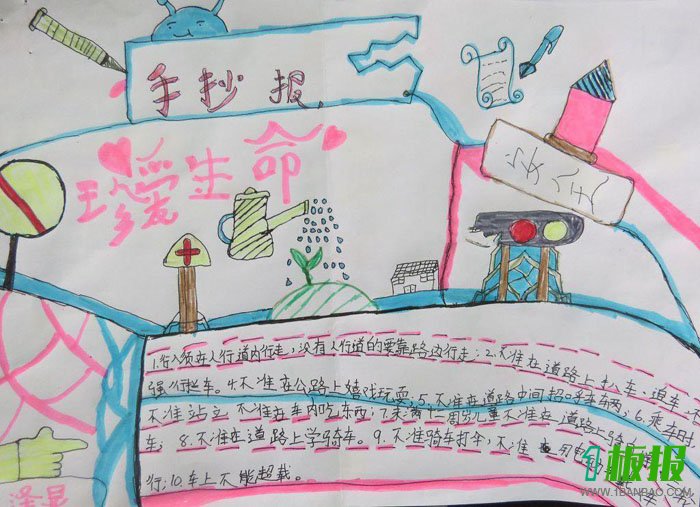 手抄报
珍爱生命
安全
1.行人须在人行道内行走,没有人行道的要靠路边行走;2.不准在道路上扒车、追车、
强行拦车。4.不准在公路上嬉戏玩耍;5.不准在道路中间招呼车辆;6.乘车时
不准站立 不准在车内吃东西;7.未满十二周岁儿童不准在道路上骑
车; 8.不准在道路上学骑车。9.不准骑车打伞,不准
行;10.车上不能超载。
1板报
WWW.1BANBAO.COM